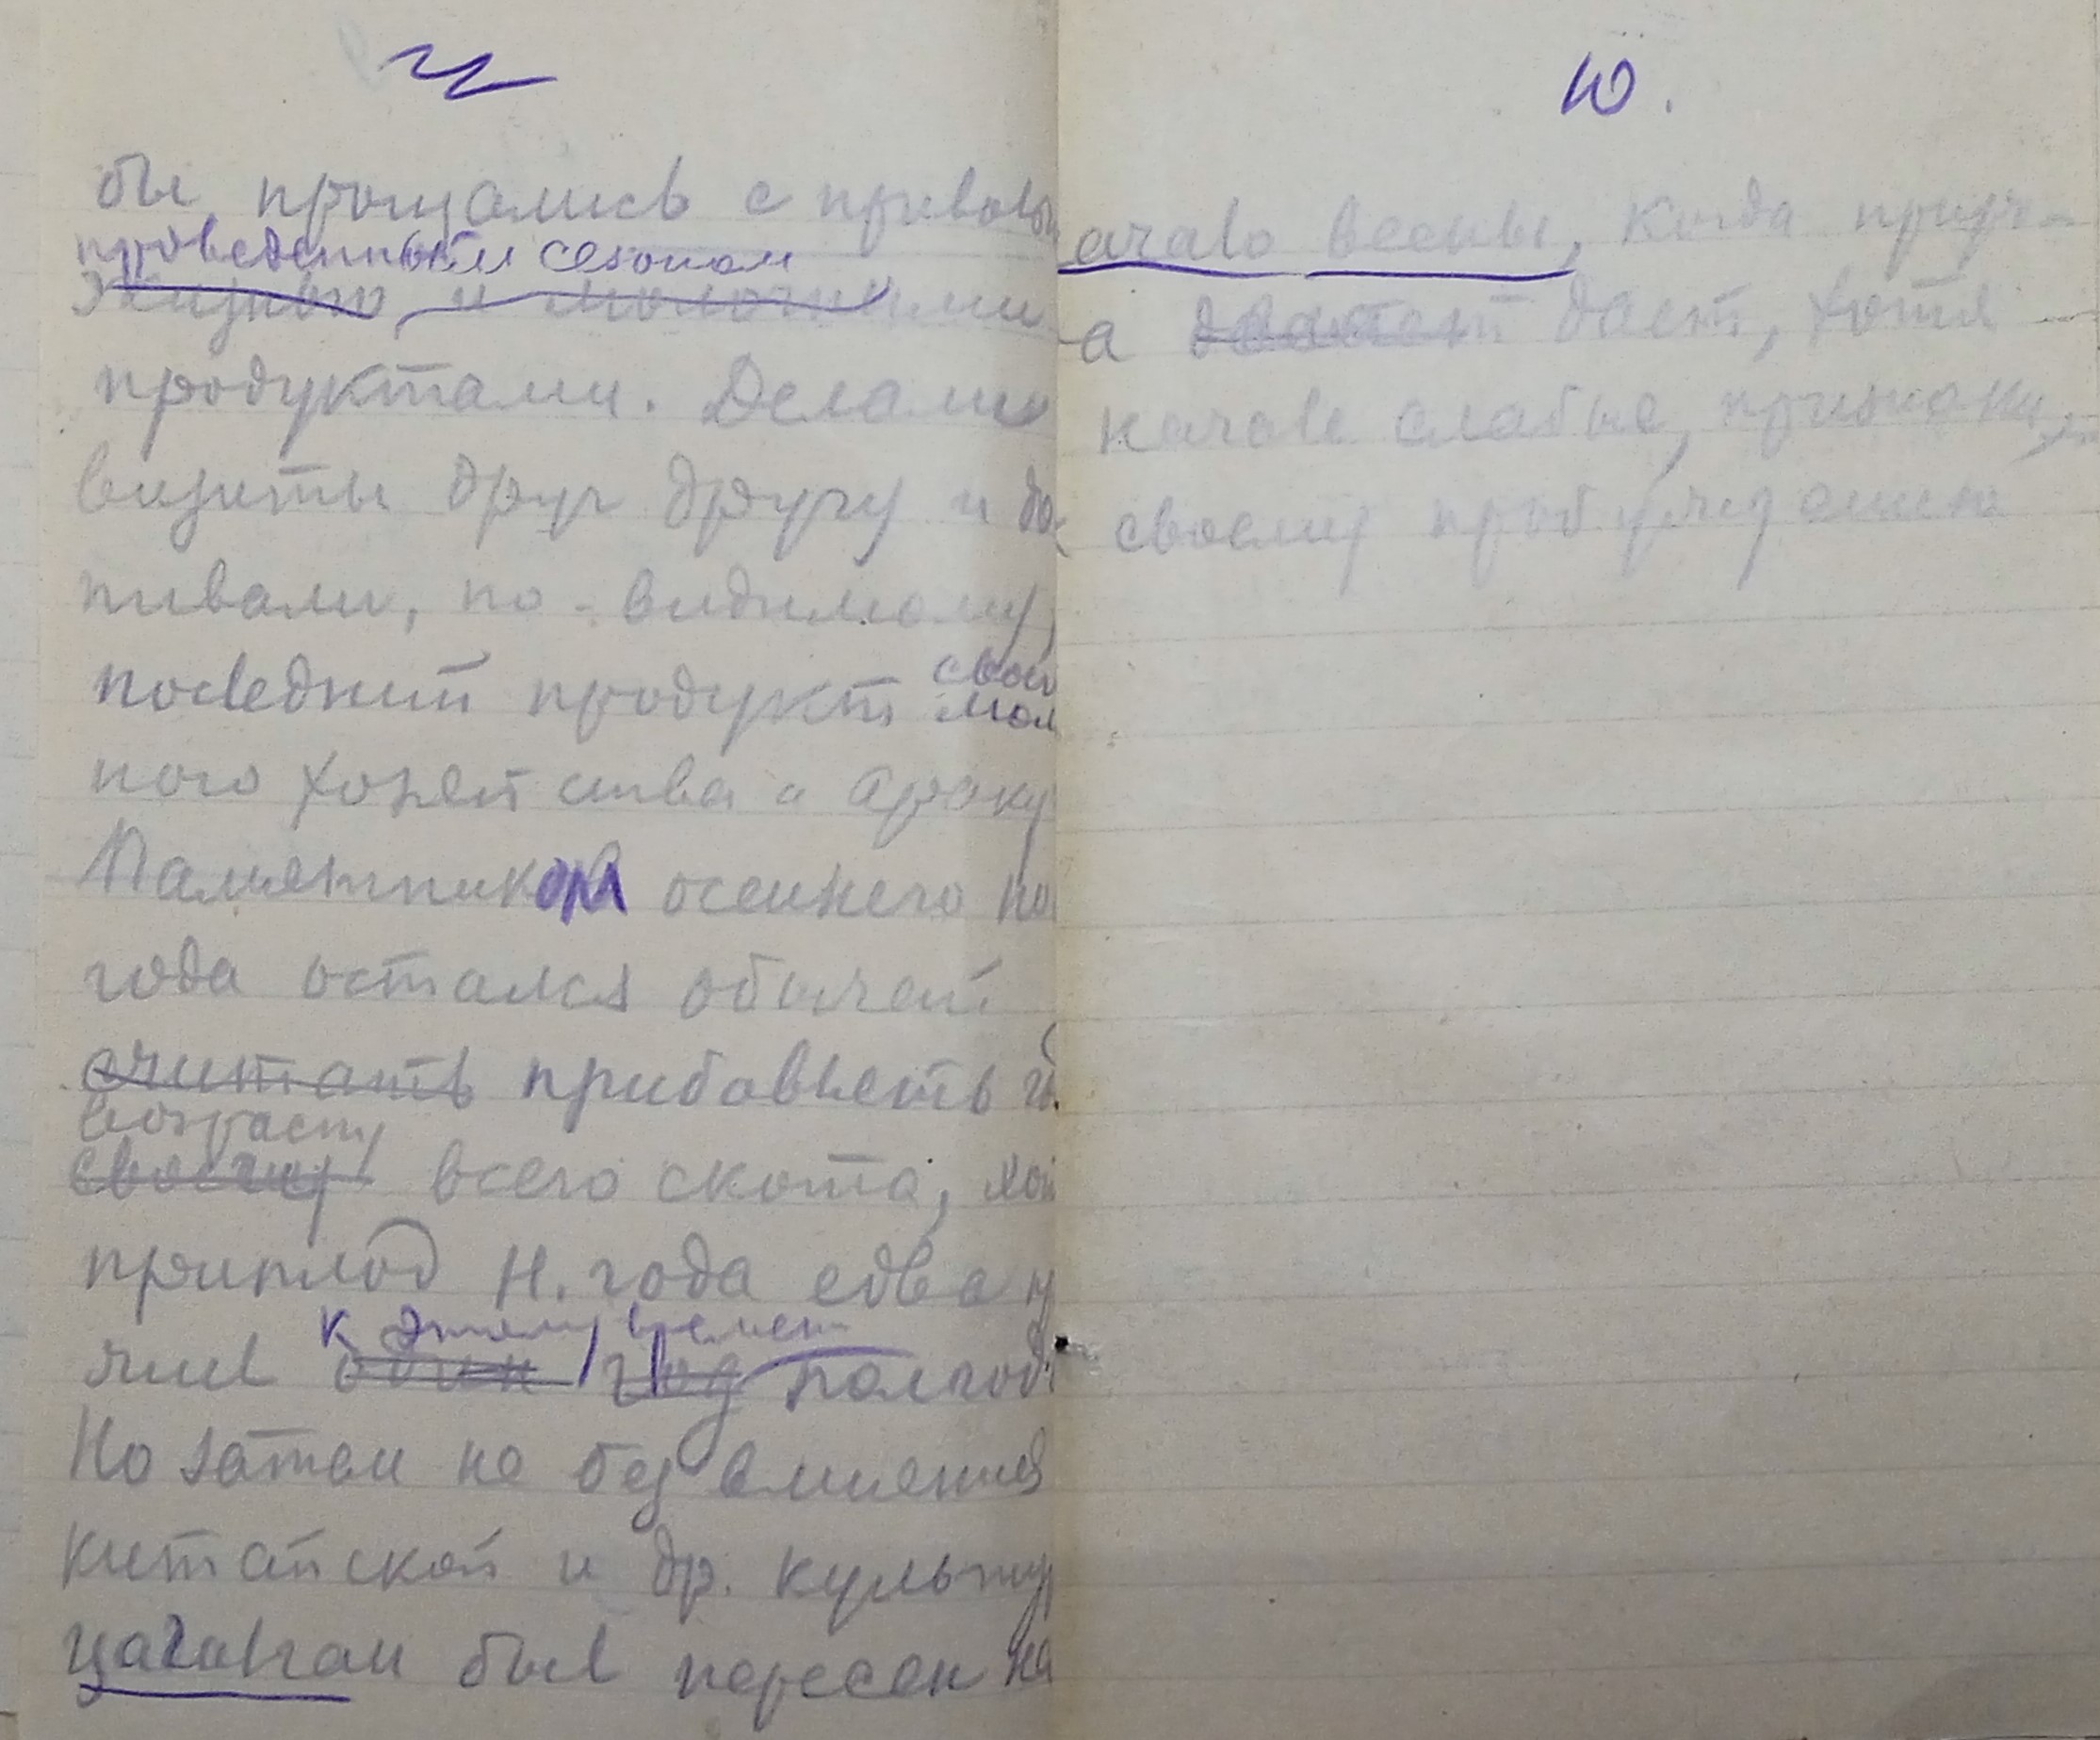 бы прощались с привольн
проведенным сезоном
жизнью, и молочными
продуктами. Делали
визиты друг другу и до
пивали, по-видимому,
последний продукт свое
мол
ного хозяйства - араку
Памятником осеннего но
года остался обычай
считать прибавлять го
возрасту
своему всего скота, хот
приплод н. года едва п
к этому времен
чил один год полгод
Но затем не без влияния
китайской и др. культур
цагалган был перенесен на
10.
ачало весны, когда приро-
а дает, хотя
начале слабые, признаки
своему пробуждению